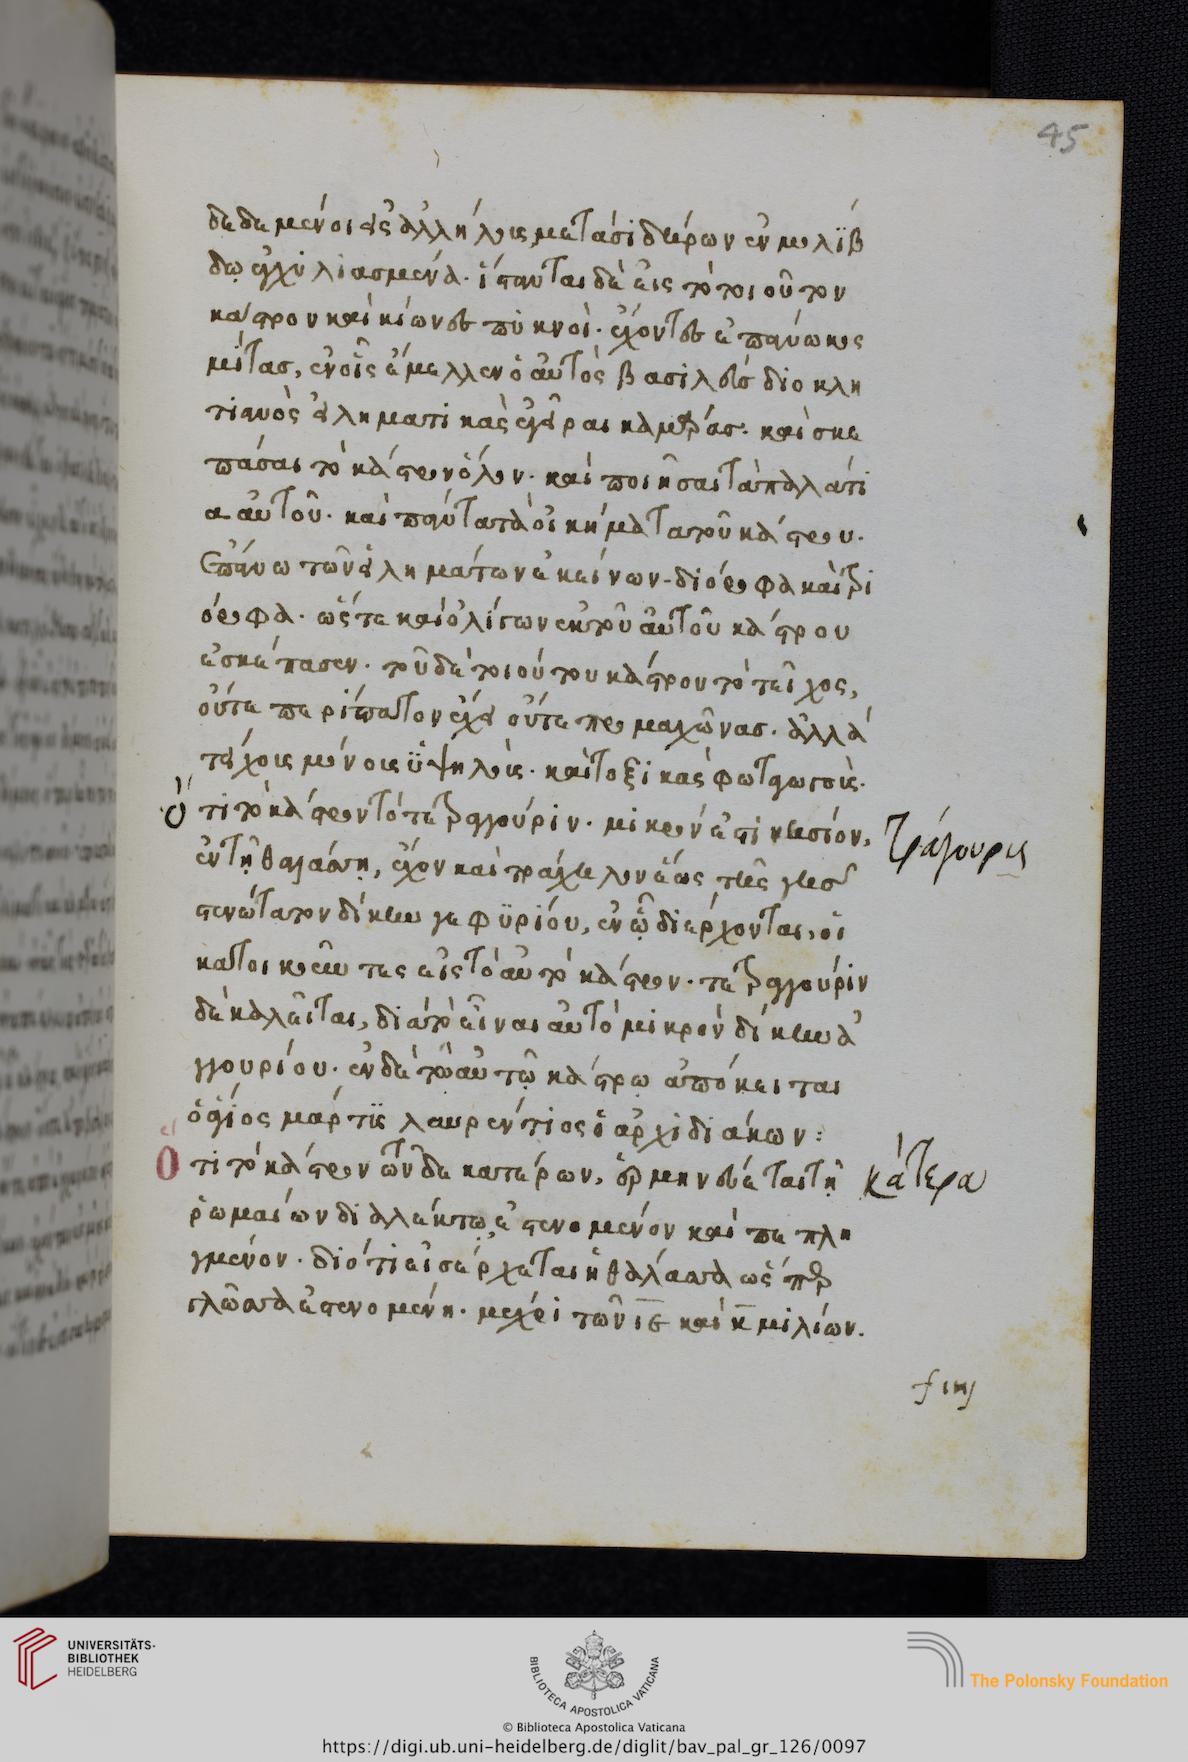 45
δεδεμένοι εἰς ἀλλήλους μετὰ σιδήρων ἐν μολίβ
δῳ ἐγχυλιασμένα· ἵστανται δὲ εἰς τὸ τοιοῦτον
κάστρον καὶ κίωνες πυκνοί· ἔχοντες ἐπάνω κος
μίτας, ἐν οἷς ἔμελλεν ὁ αὐτὸς βασιλεὺς διοκλη
τιανὸς εἰληματικὰς ἐγεῖραι καμάρας· καὶ σκε
πάσαι τὸ κάστρον ὅλον· καὶ ποιῆσαι τὰ παλάτι
α αὐτοῦ· καὶ πάντα τὰ οἰκήματα τοῦ κάστρου·
Ἐπάνω τῶν εἰλημάτων ἐκείνων· διόροφα καὶ τρι
όροφα· ὥστε καὶ ὀλίγων ἐκ τοῦ αὐτοῦ κάστρου
ἐσκέπασεν· τοῦ δὲ τοιούτου κάστρου τὸ τεῖχος,
οὔτε περίπατον ἔχει οὔτε προμαχῶνας· ἀλλὰ
τείχοις μόνοις ὑψηλοῖς· καὶ τοξικὰς φωταγωγούς·
Ὅτι τὸ κάστρον τὸ τετραγγούριν· μικρόν ἐστι νησίον,
ἐν τῇ θαλάσσῃ, ἔχον καὶ τράχηλον ἕως τῆς γῆς
στενώτατον δίκην γεφυρίου, ἐν ᾧ διέρχονται, οἱ
κατοικοῦντες εἰς τὸ αὐτὸ κάστρον· τετραγγούριν
δὲ καλεῖται, διὰ τὸ εἶναι αὐτὸ μικρὸν δίκην ἀ
γγουρίου· ἐν δὲ τῷ αὐτῷ κάστρῳ ἀπόκειται
ὁ ἅγιος μάρτυς λαυρέντιος ὁ ἀρχιδιάκων:
Ὅτι τὸ κάστρον τῶν δεκατέρων, ἑρμηνεύεται τῇ
ῥωμαίων διαλέκτῳ ἐστενομένον καὶ πεπλη
γμένον· διότι εἰσέρχεται ἡ θάλασσα ὥσπερ
γλῶσσα ἐστενομένη· μέχρι τῶν ιε καὶ κ μιλίων.
Τράγουρις
κάτερα
finis
UNIVERSITÄTS-
BIBLIOTHEK
HEIDELBERG
BIBLIOTECA APOSTOLICA VATICANA
The Polonsky Foundation
© Biblioteca Apostolica Vaticana
https://digi.ub.uni-heidelberg.de/diglit/bav_pal_gr_126/0097